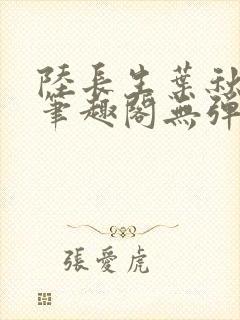 陸長生葉秋
筆趣閣無彈
張愛虎